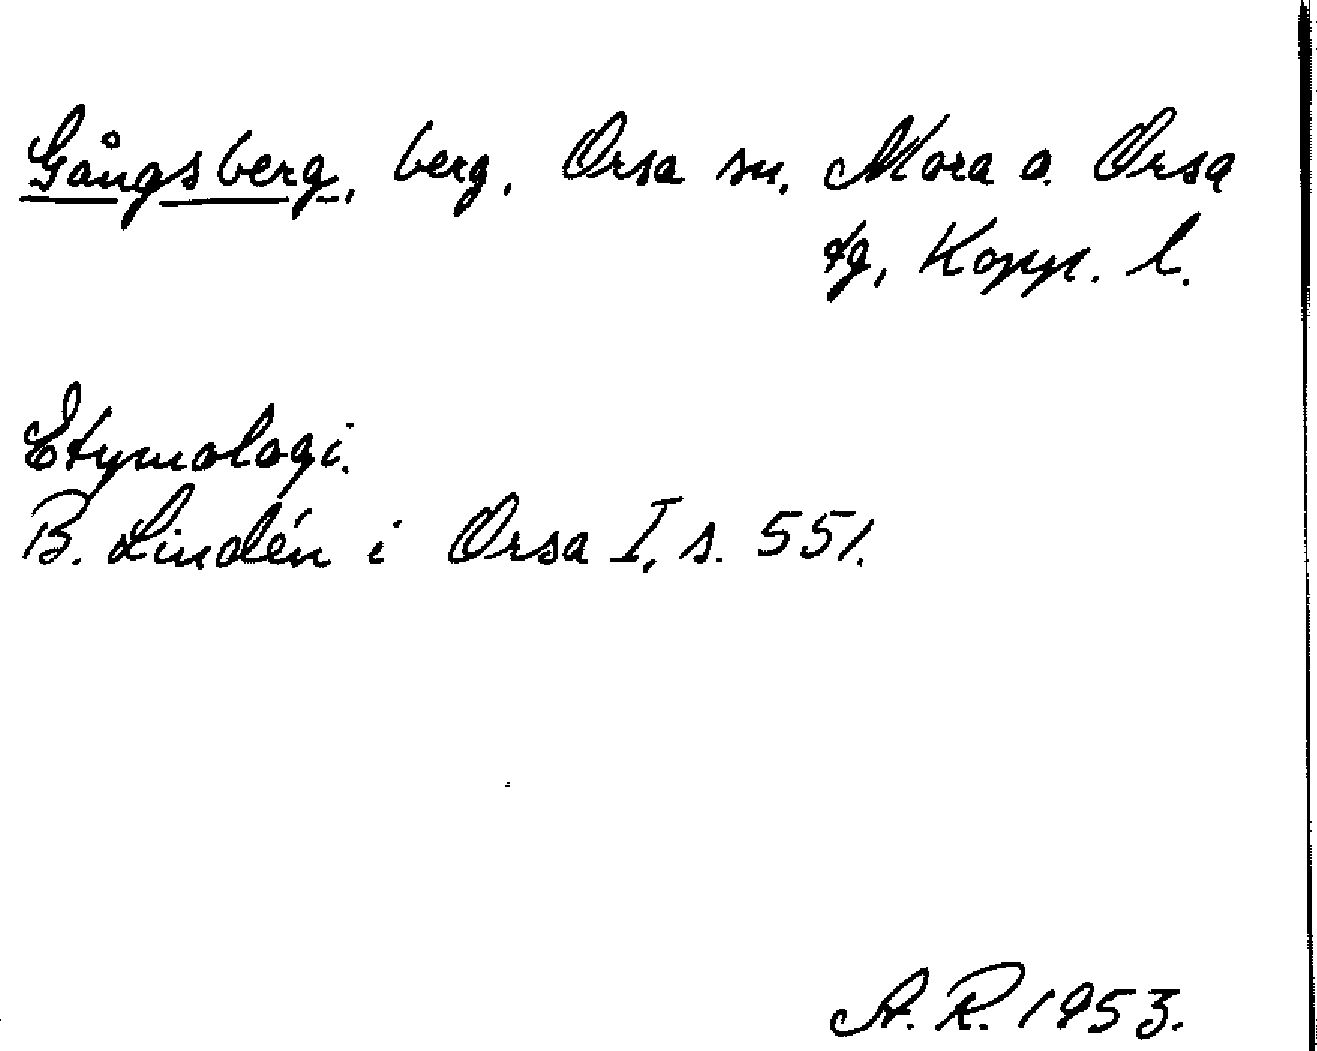 Gångsberg, berg, Orsa sn, Mora o. Orsa
tg, Kopp. l.
Etymologi.
B. Lindén i Orsa I, s. 551.
A. R. 1953.